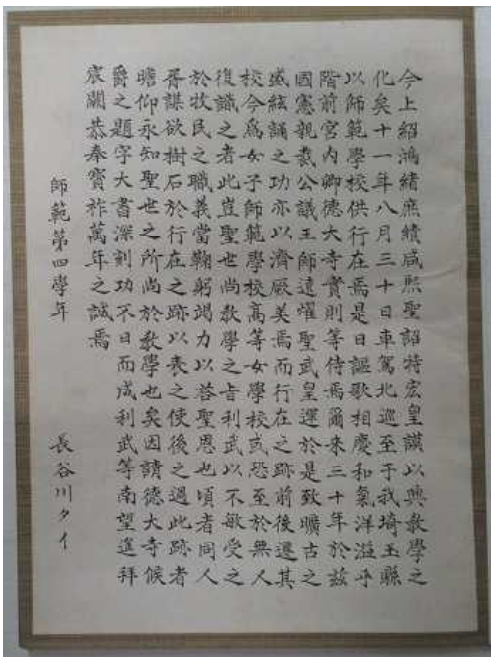 今上紹鴻緒庶績咸熙聖詔特宏皇謨以興教學之
化矣十一年八月三十日車駕北巡至于我埼玉縣
以師範學校供行在焉是日謳歌相慶和氣洋溢乎
階前宮内卿德大寺實則等侍焉爾来三十年於兹
國憲親裁公議王師遠耀聖武皇運於是致曠古之
盛絃誦之功亦以濟厥美焉而行在之跡前後遷其
校今爲女子師範學校高等女學校或恐至於無人
復識之者此豈聖世尚教學之旨利武以不敏受之
於牧民之職義當鞠躬竭力以答聖恩也頃者同人
胥謀欲樹石於行在之跡以表之使後之過此跡者
瞻仰永知聖世之所尚於教學也矣因請德大寺候
爵之題字大書深刻功不日而成利武等南望進拜
宸闕恭奉寶祚萬年之誠焉
師範第四學年　長谷川タイ